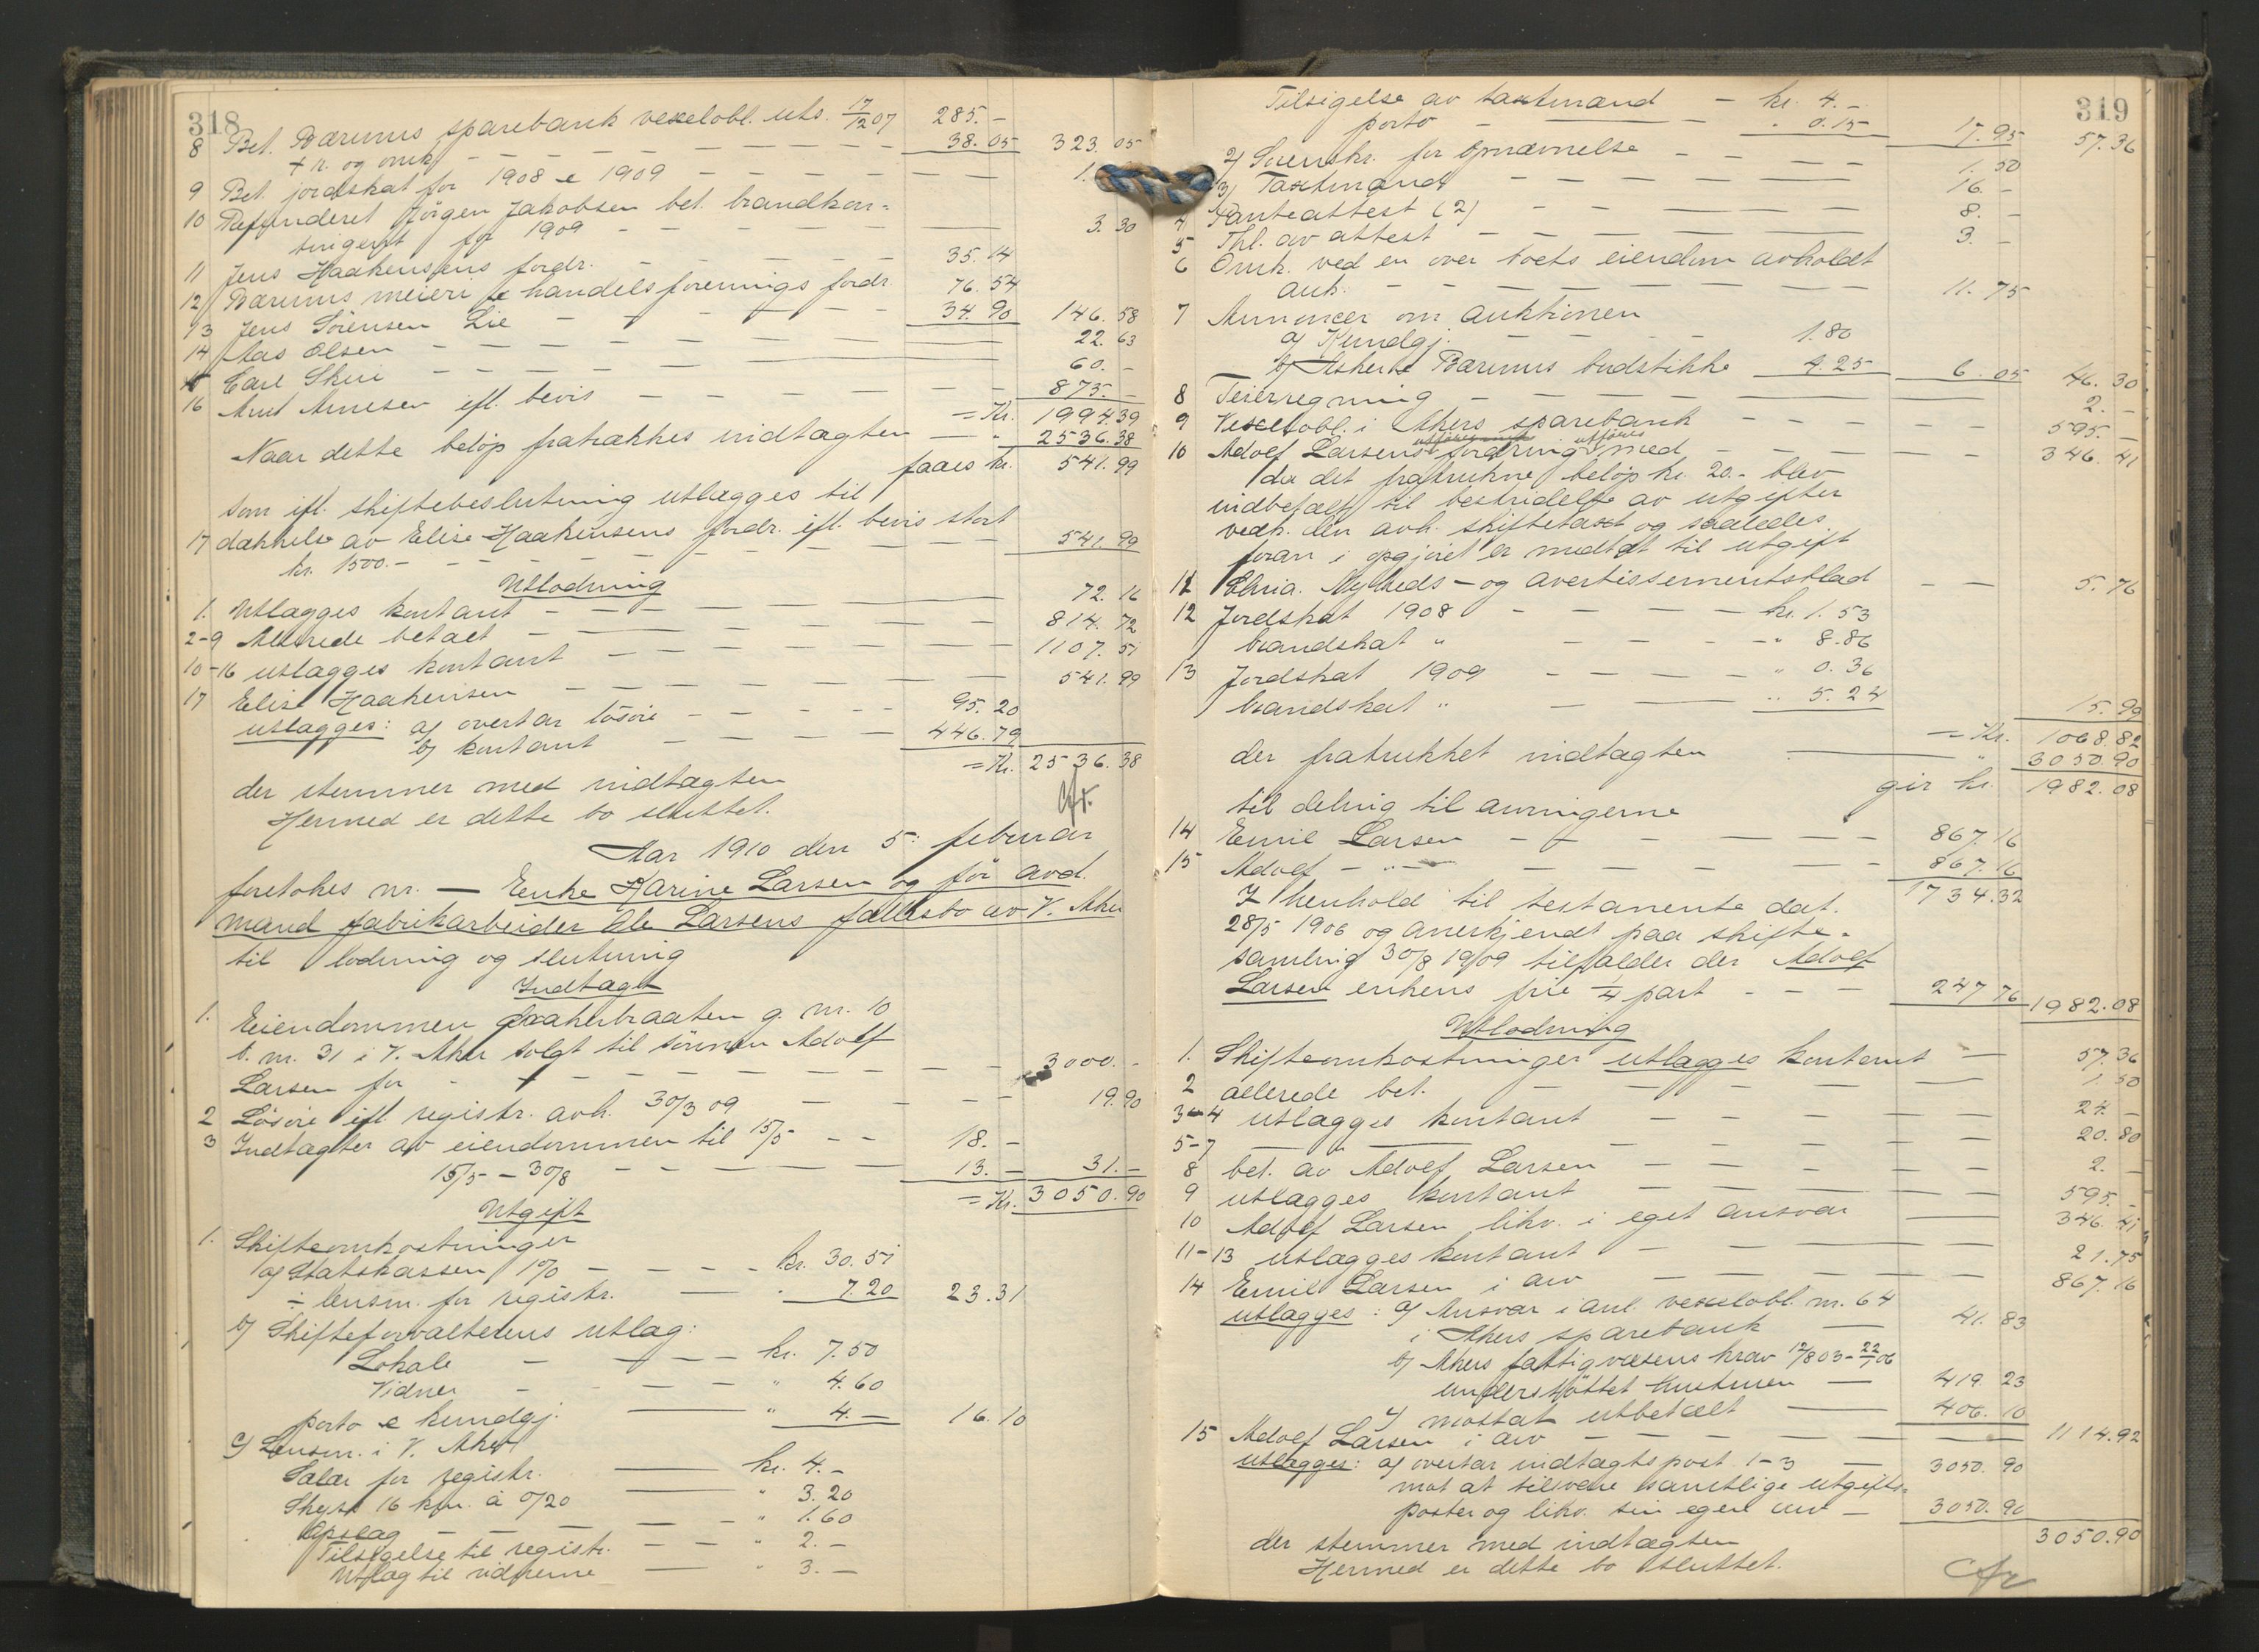 318
8 Bet. Bærums sparebank vexelobl. uts. 17/12 07 285.-
+ r. og omk. - - - - - - - 38.05 323.05
9 Bet. jordskat for 1908 & 1909 - - - - - 1.
10 Refunderet Jørgen Jakobsen bet. brandkon-
tingent for 1909 - - - - - - 3.30
11 Jens Haakensens fordr. - - - - 35.14
12 Bærums meieri & handelsforenings fordr. 76.54
13 Jens Sörensen Lie - - - - - 34.90 146.58
14 Aas Olsen - - - - - - 22.63
15 Carl Skui - - - - - - 60.-
16 Arnt Arnesen efl. bevis - - - - - 875.-
= Kr. 1994.39
Naar dette beløp fratrækkes indtægten — " 2536.38
faaes kr. 541.99
som ifl. skiftebeslutning utlægges til
17 dækkelse av Elise Haakensens fordr. ifl. bevis stort
kr. 1500.- - - - - - - - 541.99
Utlodning
1. Utlægges kontant - - - - - 72.16
2-9 Allerede betalt - - - - - 814.72
10-16 utlægges kontant - - - - - 1107.51
17 Elise Haakensen - - - - - 541.99
utlægges: a) overtar løsøre - - - - 95.20
b) kontant - - - - 446.79
= Kr. 2536.38
der stemmer med indtægten
Hermed er dette bo sluttet.
Aar 1910 den 5. februar
foretokes nr. — Enke Karine Larsen og før avd.
mand fabrikarbeider Ole Larsens fællesbo av V. Aker
til lodning og slutning
Indtægt
1. Eiendommen Graakerbraaten g. nr. 10
b. nr. 31 i V. Aker solgt til sønnen Adolf
Larsen for - - - - - - - 3000.-
2 Løsøre ifl. registr. avh. 30/3 09 - - - - 19.90
3 Indtægter av eiendommen til 15/5 - - 18.-
15/5 - 30/8 - - - - - 13.- 31.-
= Kr. 3050.90
Utgift
1. Skifteomkostninger
a) Statskassen 1% - - - - kr. 30.51
÷ lensm. for registr. — " 7.20 23.31
b) Skifteforvalterens utlæg:
Lokale - - - - kr. 7.50
Vidner - - - - " 4.60
porto & kundgj. — " 4.- 16.10
c) Lensm. i V. Aker
Salær for registr. — kr. 4.-
Skyss 16 km. à 0/20 — " 3.20
Opslag - - - - - " 1.60
Tilsigelse til registr. - - - " 2.-
Utlæg til vidnerne — " 3.-
319
Tilsigelse av taxtmænd - kr. 4.-
porto - — - " 0.15 17.95 57.36
2) Sorenskr. for opnævnelse - - - - 1.50
3) Taxtmænd - - - - - - 16.-
4 Panteattest (2) - - - - - 8.-
5 Thl. av attest - - - - - 3.-
6 Omk. ved en over boets eiendom avholdt
auk. - - - - - - - 11.75
7 Annoncer om auktionen
a) Kundgj. - - - - 1.80
b) Asker & Bærums budstikke 4.25 6.05 46.30
8 Feierregning - - - - - - 2.-
9 Vexelobl. i Akers sparebank - - - - 595.-
10 Adolf Larsens fordring utføres med - - - - 346.41
da det fratrukne beløp kr. 20.- blev
indbetalt til bestridelse av utgifter
vedk. den avh. skiftetaxt og saaledes
foran i opgjøret er medtat til utgift
11 Chria. Nyheds- og avertissementsblad - - 5.76
12 Jordskat 1908 - - - - kr. 1.53
brandskat " - - - - " 8.86
13 Jordskat 1909 - - - - " 0.36
brandskat " - - — " 5.24 15.99
= Kr. 1068.82
der fratrukket indtægten — " 3050.90
gir kr. 1982.08
til deling til arvingerne
14 Emil Larsen - - - - - 867.16
15 Adolf - " - - - - - 867.16
1734.32
I henhold til testamente dat.
28/5 1906 og anerkjendt paa skifte-
samling 30/8 1909 tilfalder der Adolf
Larsen enkens frie 1/4 part - - - 247.76 1982.08
Utlodning
1. Skifteomkostninger utlægges kontant — 57.36
2 allerede bet. - - - - - - 1.50
3-4 utlægges kontant - - - - - 24.-
5-7 — — - - - - - 20.80
8 bet. av Adolf Larsen - - - - - 2.-
9 utlægges kontant - - - - - 595.-
10 Adolf Larsen likv. i eget ansvar — 346.41
11-13 utlægges kontant - - - - - 21.75
14 Emil Larsen i arv - - - - - 867.16
utlægges: a) Ansvar i anl. vexelobl. nr. 64
i Akers sparebank — 41.83
b) Akers fattigvæsens krav 12/8 03 - 22/1 06
understøttet hustruen — 419.23
c) motsat utbetalt — 406.10
15 Adolf Larsen i arv - - - - - 1114.92
utlægges: a) overtar indtægtspost 1-3 — 3050.90
mot at tilsvare samtlige utgifts-
poster og likv. sin egen arv — 3050.90
3050.90
der stemmer med indtægten
Hermed er dette bo sluttet.